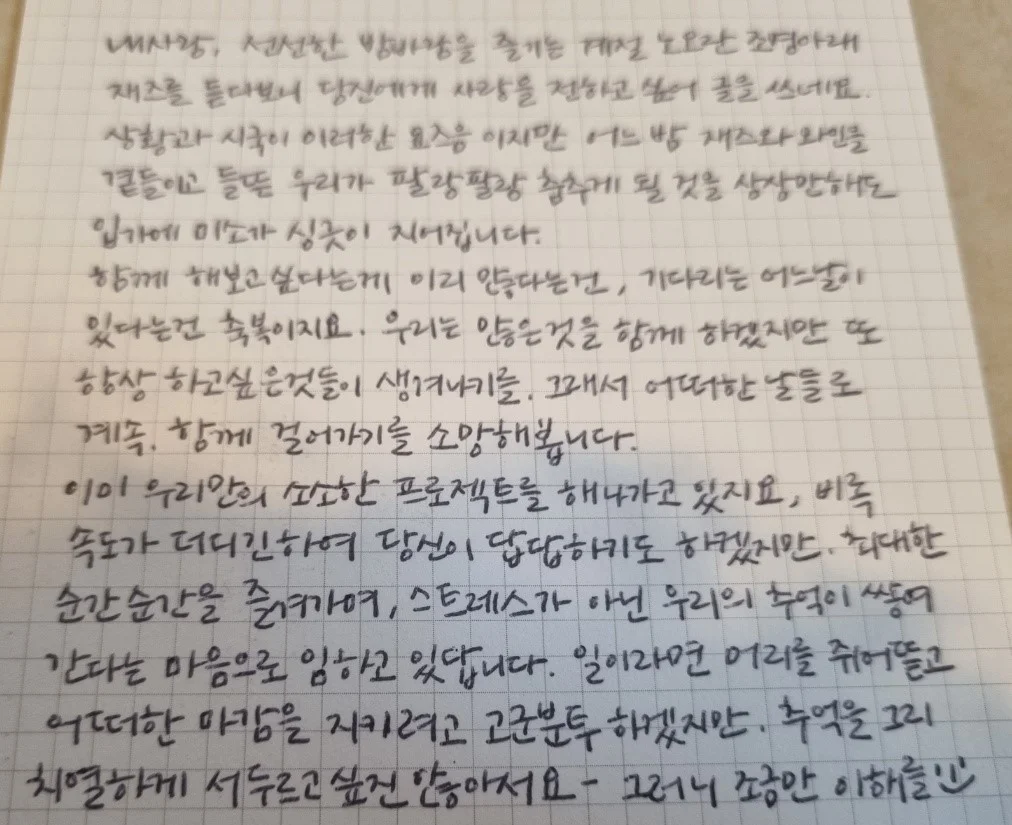 내사랑, 선선한 밤바람을 즐기는 계절 노오란 조명아래
재즈를 듣다보니 당신에게 사랑을 전하고 싶어 글을 쓰네요.
상황과 시국이 이러한 요즈음 이지만 어느 밤 재즈와 와인을
곁들이고 들뜬 우리가 팔랑팔랑 춤추게 될 것을 상상만해도
입가에 미소가 싱긋이 지어집니다.
함께 해보고싶다는게 이리 많다는건, 기다리는 어느날이
있다는건 축복이지요. 우리는 많은것을 함께 하겠지만 또
항상 하고싶은것들이 생겨나기를. 그래서 어떠한 날들로
계속. 함께 걸어가기를 소망해봅니다.
이미 우리만의 소소한 프로젝트를 해나가고 있지요, 비록
속도가 더디긴하여 당신이 답답하기도 하겠지만. 최대한
순간순간을 즐겨가며, 스트레스가 아닌 우리의 추억이 쌓여
간다는 마음으로 임하고 있답니다. 일이라면 머리를 쥐어뜯고
어떠한 마감을 지키려고 고군분투 하겠지만. 추억을 그리
치열하게 서두르고싶진 않아서요- 그러니 조금만 이해를